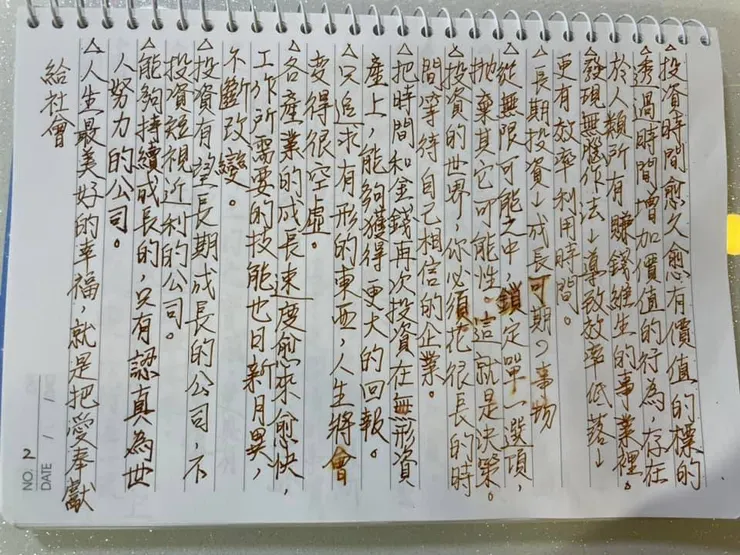 △投資時間愈久愈有價值的標的
△透過時間增加價值的行為,存在
於人類所有賺錢維生的事業裡。
△發現無腦作法↓導致效率低落↓
更有效率利用時間。
△長期投資↓成長可期の事物
△從無限可能之中,鎖定單一選項,
拋棄其它可能性。這就是決策。
△投資的世界,你必須花很長的時
間等待自己相信的企業。
△把時間和金錢再次投資在無形資
產上,能夠獲得更大的回報。
△只追求有形的東西,人生將會
變得很空虛。
△各產業的成長速度愈來愈快,
工作所需要的技能也日新月異,
不斷改變。
△投資有望長期成長的公司,不
投資短視近利的公司。
△能夠持續成長的,只有認真為世
人努力的公司。
△人生最美好的幸福,就是把愛奉獻
給社會
NO. 2
DATE / /